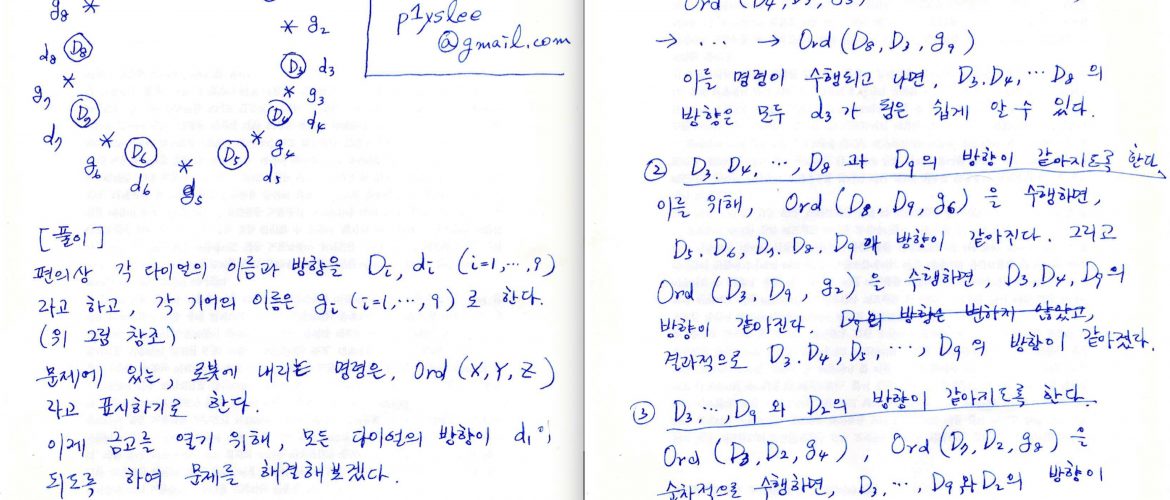 g8 *
* g2
d8 D8
D3 d3
*
g7
* g3
D7
D4
d7
d4
* g6
D6
d6
*
g5
D5
* g4
d5
p1yslee
@gmail.com
[풀이]
편의상 각 다이얼의 이름과 방향을 Di, di (i=1,…,9)
라고 하고, 각 기어의 이름은 gi (i=1,…,9)로 한다.
(위 그림 참조)
문제에 있는, 로봇에 내리는 명령은, Ord (X,Y,Z)
라고 표시하기로 한다.
이제 금고를 열기 위해, 모든 다이얼의 방향이 d1이
되도록 하여 문제를 해결해보겠다.
→ … → Ord (D8, D3, g9)
이들 명령이 수행되고 나면, D3, D4, … D8 의
방향은 모두 d3가 됨은 쉽게 알 수 있다.
② D3, D4, …, D8 과 D9의 방향이 같아지도록 한다.
이를 위해, Ord (D8, D9, g6)을 수행하면,
D5, D6, D7, D8, D9의 방향이 같아진다. 그리고
Ord (D3, D9, g2)을 수행하면, D3, D4, D9의
방향이 같아진다. D9의 방향은 변하지 않았고,
결과적으로 D3, D4, D5, …, D9의 방향이 같아졌다.
③ D3, …, D9 와 D2의 방향이 같아지도록 한다.
Ord (D3, D2, g4), Ord (D7, D2, g8)을
순차적으로 수행하면, D3, …, D9와 D2의 방향이